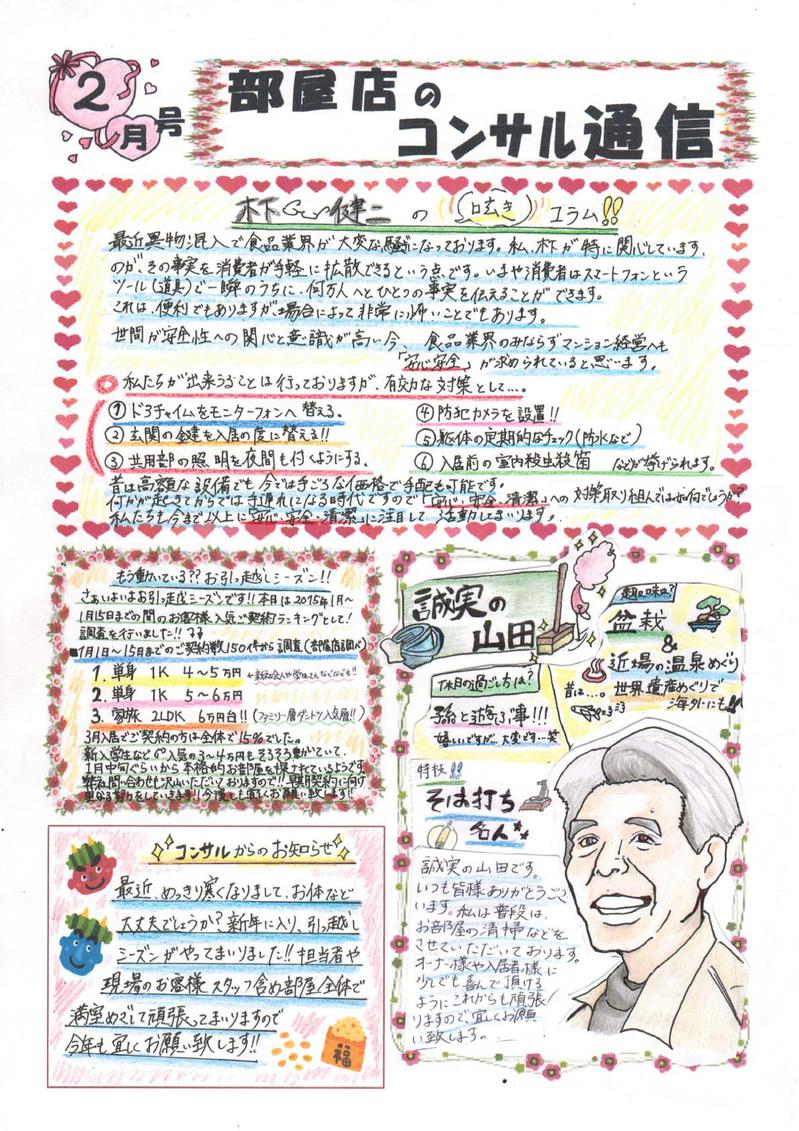 2月号
部屋店の
コンサル通信
木下 健二 の 呟き コラム!!
最近異物混入で食品業界が大変な騒ぎになっております。私、木下が特に関心しています、
のが、その事実を消費者が手軽に拡散できるという点です。いまや消費者はスマートフォンという
ツール(道具)で一瞬のうちに、何万人へとひとりの事実を伝えることができます。
これは、便利でもありますが場合によって非常に怖いことでもあります。
世間が安全性への関心と意識が高い今、食品業界のみならずマンション経営へも
「安心安全」が求められていると思います。
私たちが出来うることは行っておりますが、有効な対策として...。
① ドアチャイムをモニターフォンへ替える。
② 玄関の鍵を入居の度に替える!!
③ 共用部の照明を夜間も付くようにする、
④ 防犯カメラを設置!!
⑤ 躯体の定期的なチェック(防水など)
⑥ 入居前の室内殺虫殺菌 などが挙げられます。
昔は高額な設備でも今では手ごろな価格で手配も可能です。
何かが起きてからでは手遅れになる時代ですので「安心・安全・清潔」への対策取り組んでは如何でしょうか?
私たちも今まで以上に「安心・安全・清潔」に注目して活動してまいります。
もう動いている??お引っ越しシーズン!!
さぁいよいよお引っ越しシーズンです!!本日は2015年1月〜
1月15日までの間のお客様人気ご契約ランキングとして!
調査を行いました!!
■1月1日〜15日までのご契約数150件から調査(部屋店調べ)
1. 単身 1K 4〜5万円
2. 単身 1K 5〜6万円
3. 家族 2LDK 6万円台!!(ファミリー層ダントツ人気層!!)
3月入居でご契約の方は全体で15%でした。
新入学生など 人気の3〜4万円もそろそろ動いていて、
1月中旬ぐらいから本格的お部屋を探されているようです。
お問い合わせも沢山いただいておりますので!!早期契約に向け
更なる努力をしていきます!!今後とも宜しくお願い致します!!
誠実の
山田
趣味は?
盆栽
&
近場の温泉めぐり
昔は...。世界遺産めぐりで
海外にも!!
休日の過ごし方は?
孫と遊ぶ事!!!
嬉しいですが、大変です…笑
特技!!
そば打ち
名人
誠実の山田です。
いつも皆様ありがとうござ
います。私は普段は、
お部屋の清掃などを
させていただいております。
オーナー様や入居者様に
少しでも喜んで頂ける
ようにこれからも頑張
りますので、宜しくお願
い致します。
コンサルからのお知らせ
最近、めっきり寒くなりまして、お体など
大丈夫でしょうか?新年に入り、引っ越し
シーズンがやってまいりました!!担当者や
現場のお客様スタッフ含め部屋店全体で
満室めざして頑張ってまいりますので
今年も宜しくお願い致します!!
福